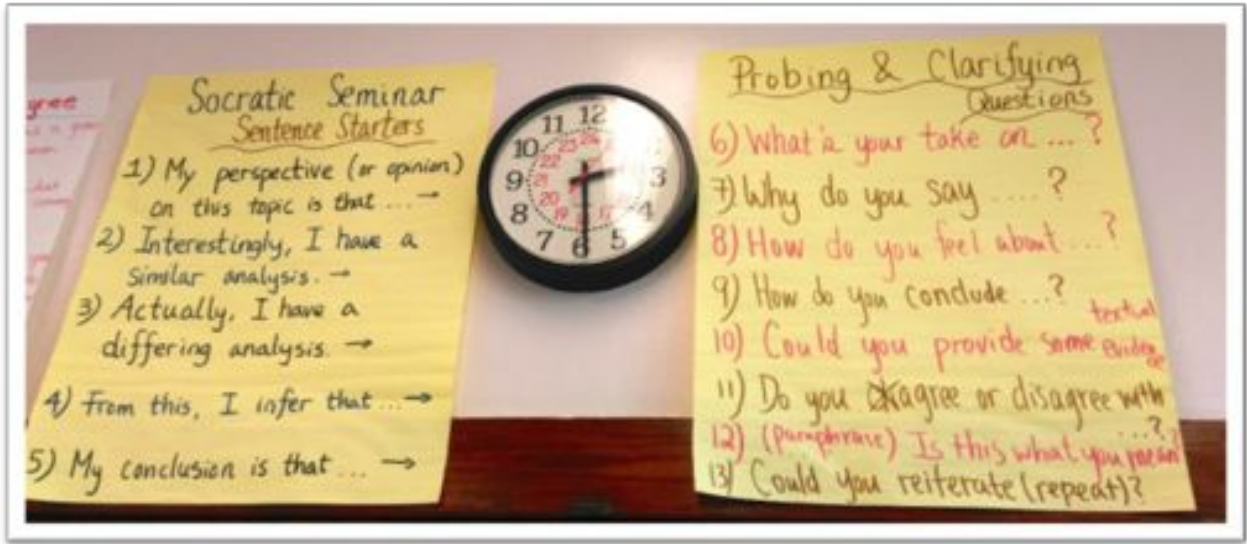 gree
Socratic Seminar
Sentence Starters
1) My perspective (or opinion)
on this topic is that ... →
2) Interestingly, I have a
similar analysis. →
3) Actually, I have a
differing analysis. →
4) From this, I infer that ... →
5) My conclusion is that ... →
12
11
10
9
8
7
6
5
4
3
24
23
22
21
20
19
17
Probing & Clarifying
Questions
6) What's your take on ... ?
7) Why do you say .... ?
8) How do you feel about ... ?
9) How do you conclude ... ?
10) Could you provide some textual evidence
11) Do you agree or disagree with
...?
12) (Paraphrase) Is this what you mean?
13) Could you reiterate (repeat)?